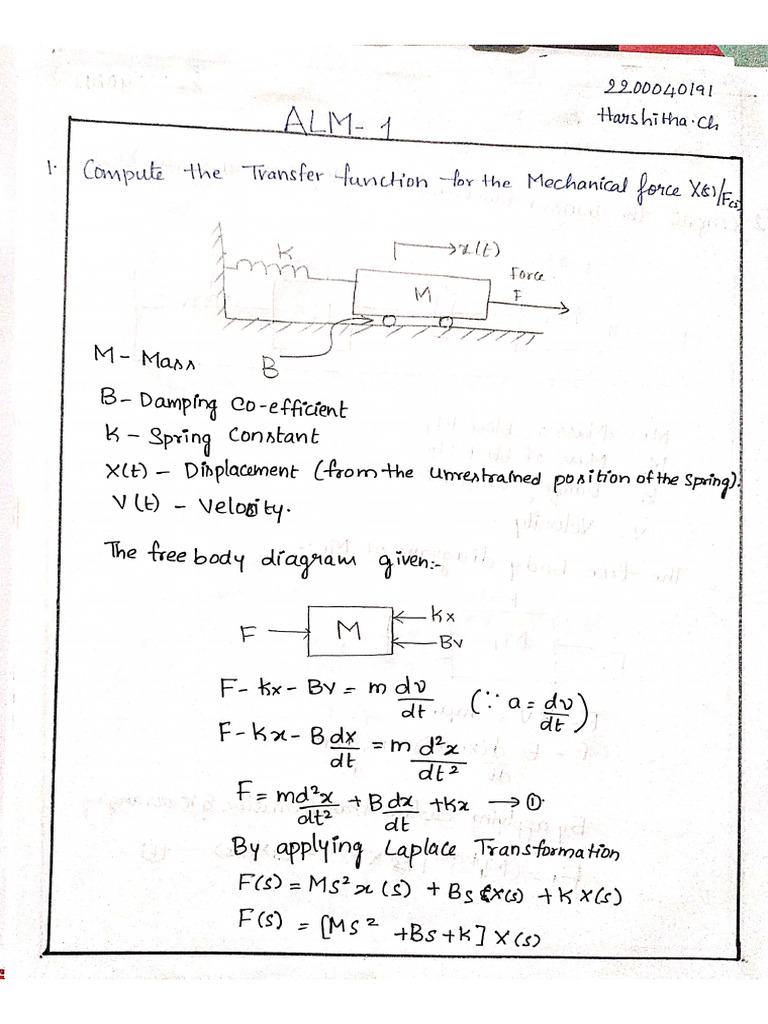 2200040191
Harshitha.Ch
ALM-1
1. Compute the Transfer function for the Mechanical force X(s)/F(s)
K
x(t)
Force
M
F
B
M - Mass
B - Damping Co-efficient
K - Spring Constant
X(t) - Displacement (from the unrestrained position of the spring).
V(t) - Velosity.
The free body diagram given:-
F
M
Kx
Bv
F - Kx - Bv = m dv/dt (∵ a = dv/dt)
F - Kx - B dx/dt = m d²x/dt²
F = md²x/dt² + B dx/dt + Kx → ①.
By applying Laplace Transformation
F(s) = Ms² x(s) + Bs X(s) + K X(s)
F(s) = [Ms² + Bs + K] X(s)